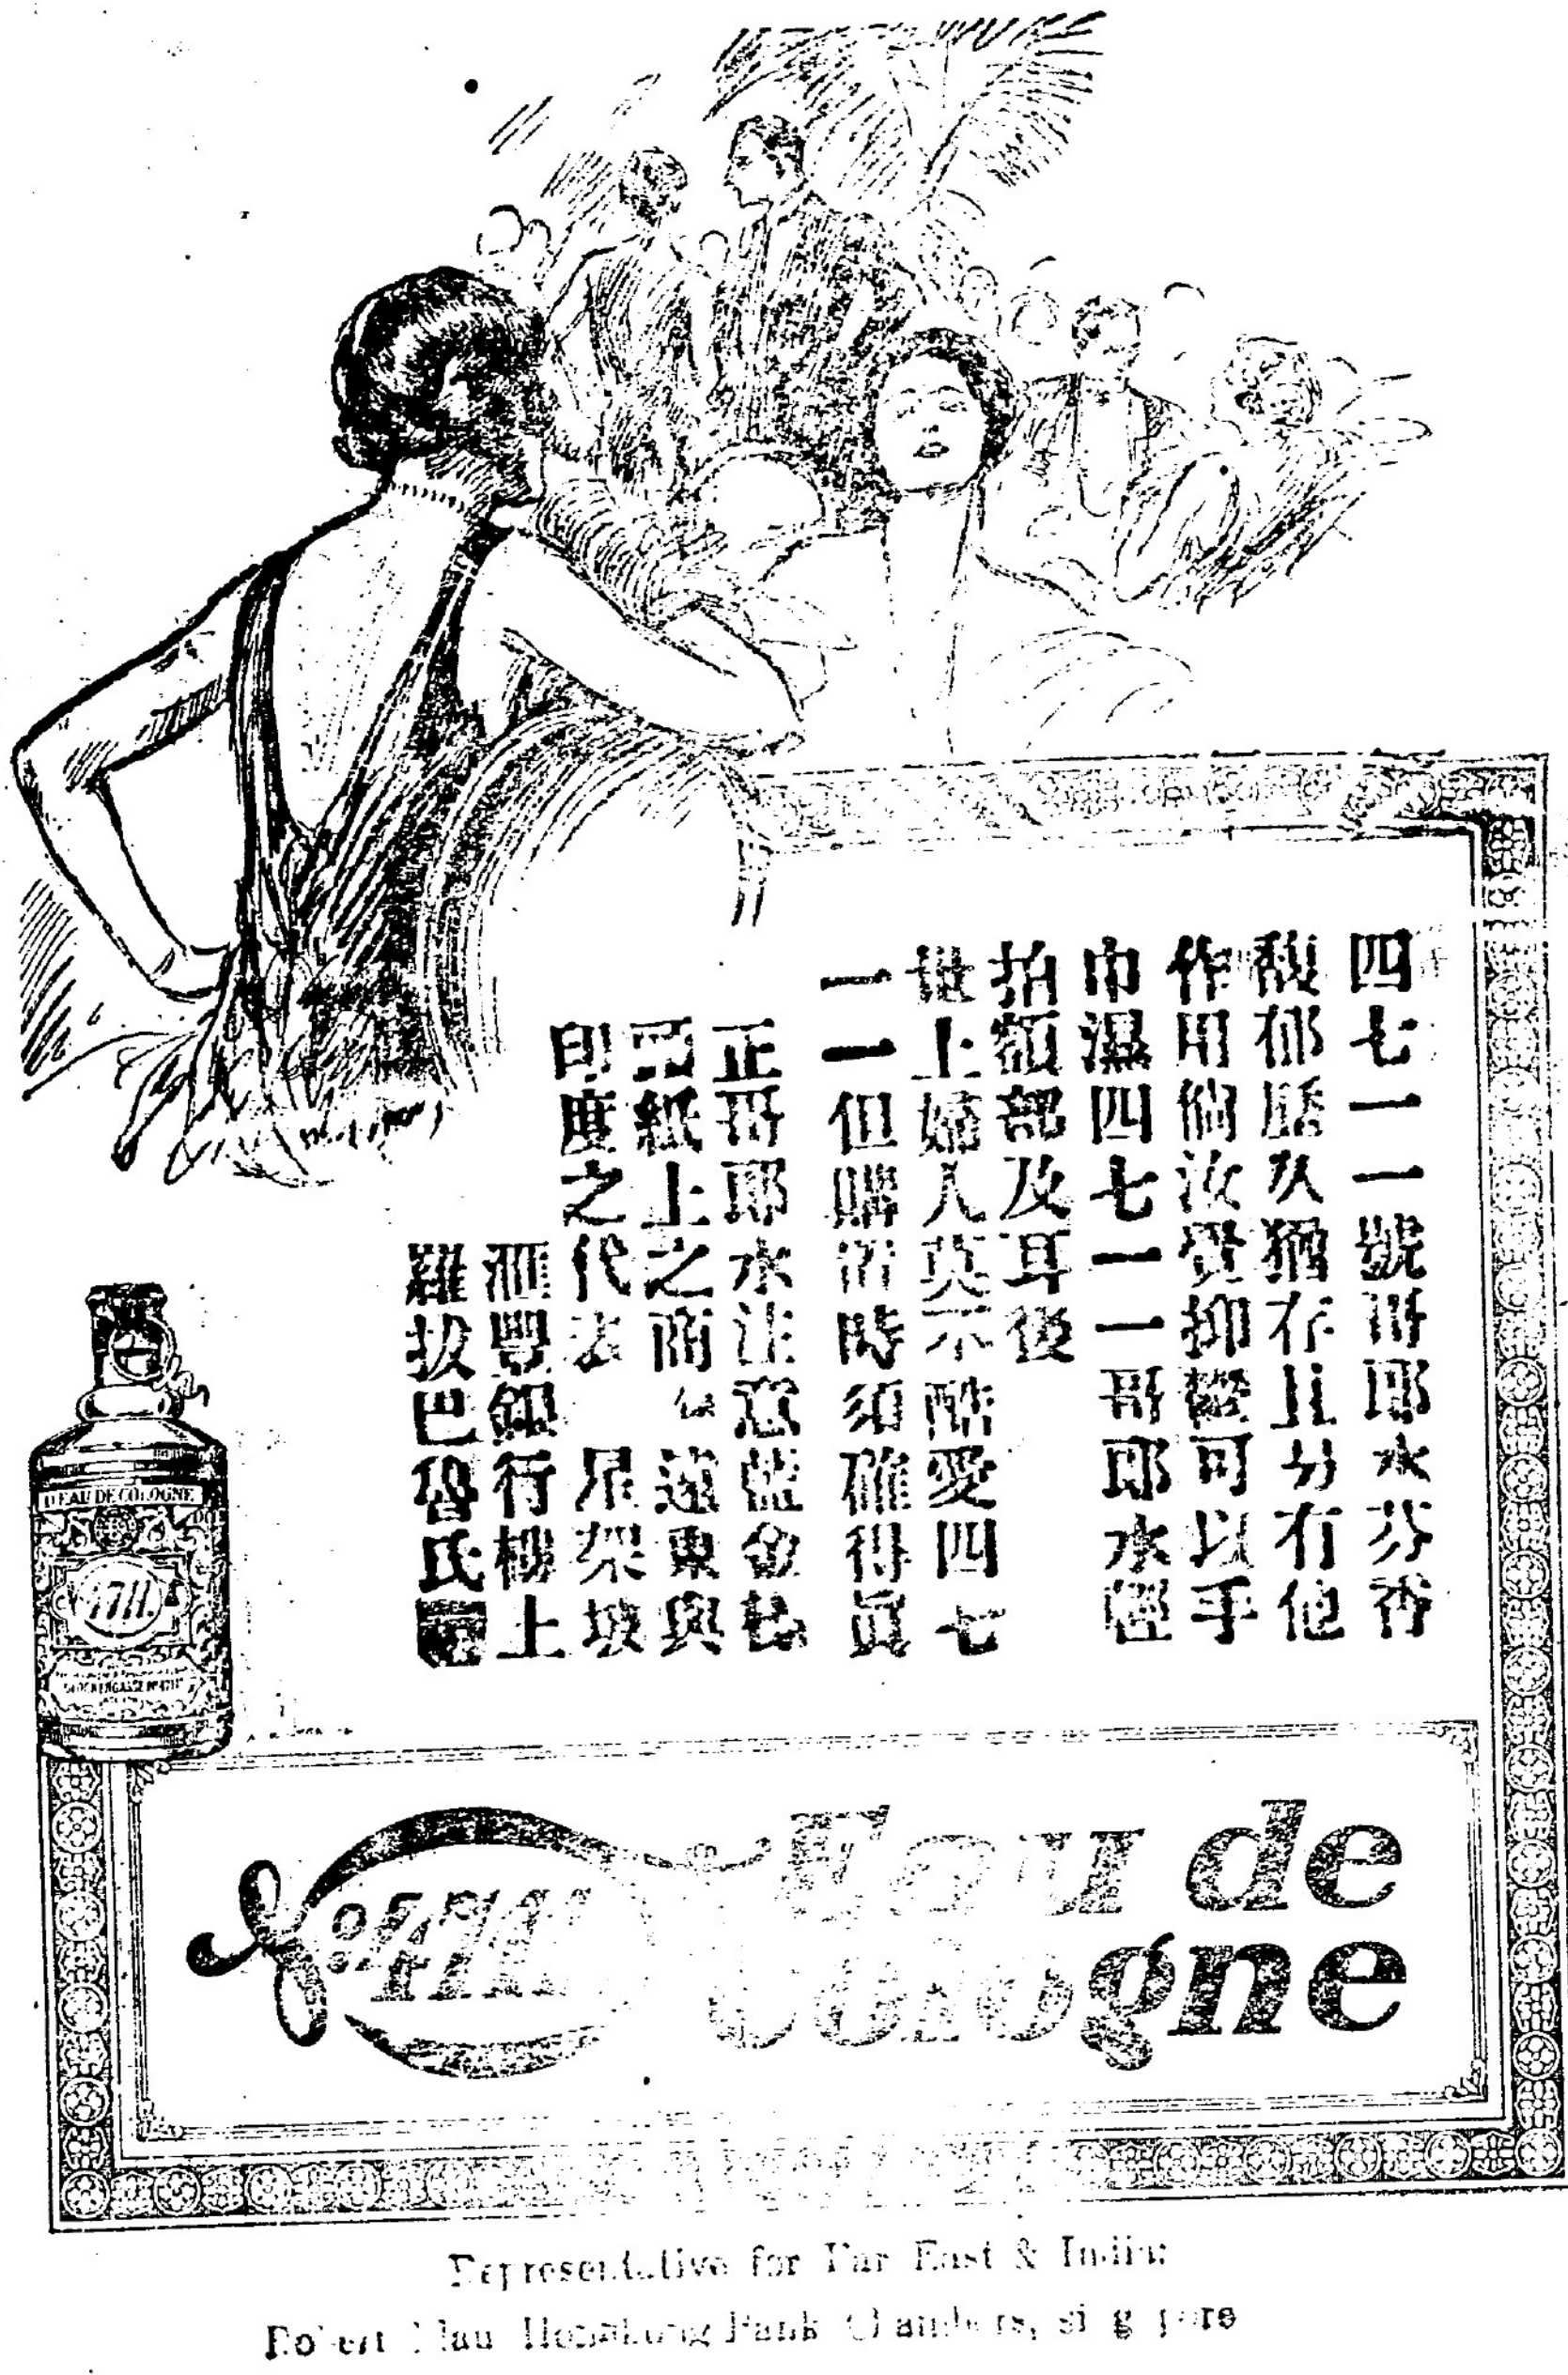 四七一一號哥耶水芬香
馥郁歷久猶存且另有他
作用倘汝覺抑鬱可以手
巾濕四七一一哥耶水輕
拍額部及耳後
世上婦人莫不酷愛四七
一一但購買時須確得眞
正哥耶水注意藍金包
紙上之商 遠東與
印度之代表 星架坡
滙豐銀行樓上
羅拔巴魯氏
D'EAU DE COLOGNE
4711.
GLOCKENGASSE Nº 4711
Nº 4711.
Eau de
Cologne
Representative for Far East & India:
Robert Hongkong Bank Chambers, singapore